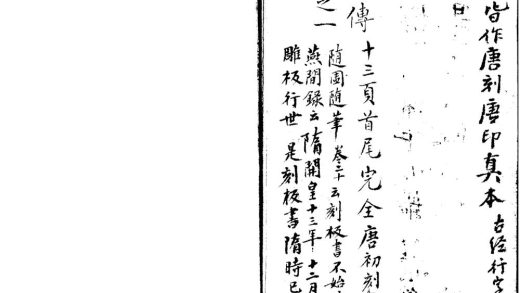 皆作唐刻唐印真本 古经行字
傳
十三頁首尾完全唐初刻
之一
随園随筆 卷三十云刻板書不始
燕閒錄云隋開皇十三年十二月
雕板行世 是刻板書隋時已